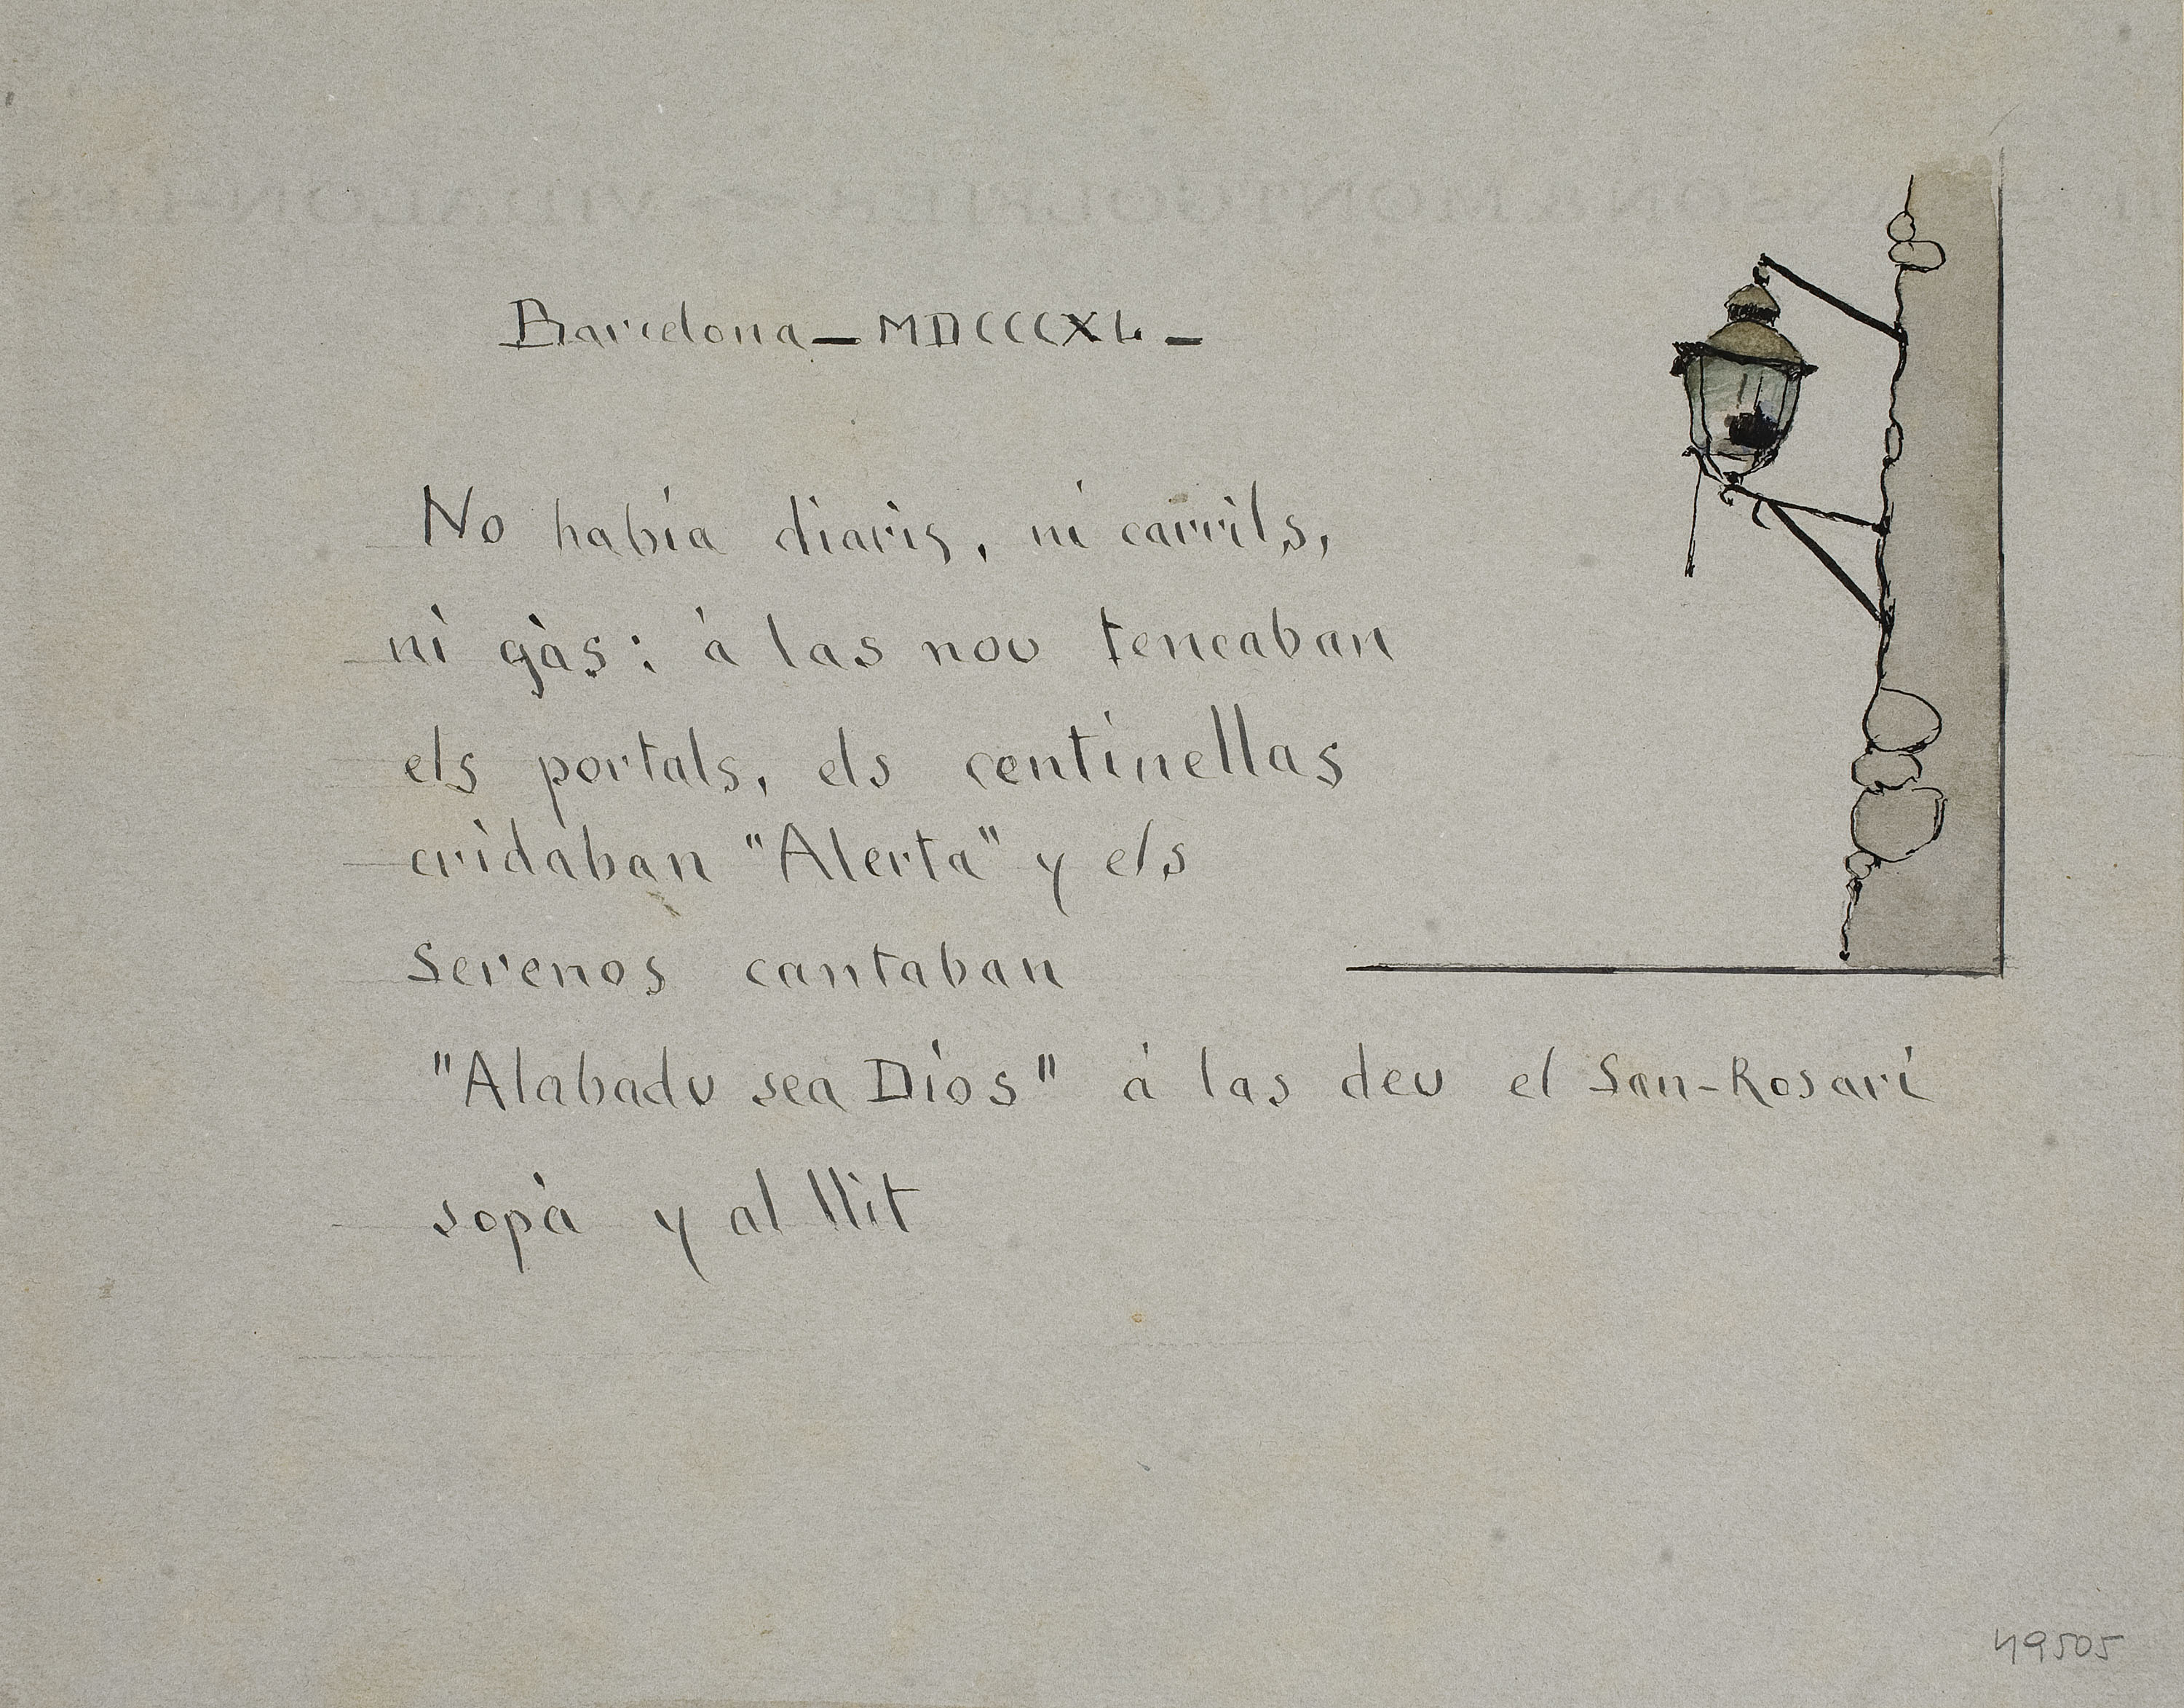 Barcelona — MDCCCXL —
No había diaris, ni carrils,
ni gàs: à las nou tencaban
els portals, els centinellas
cridaban "Alerta" y els
Serenos cantaban
"Alabadu sea Dios" à las deu el San-Rosari
sopà y al llit
49505